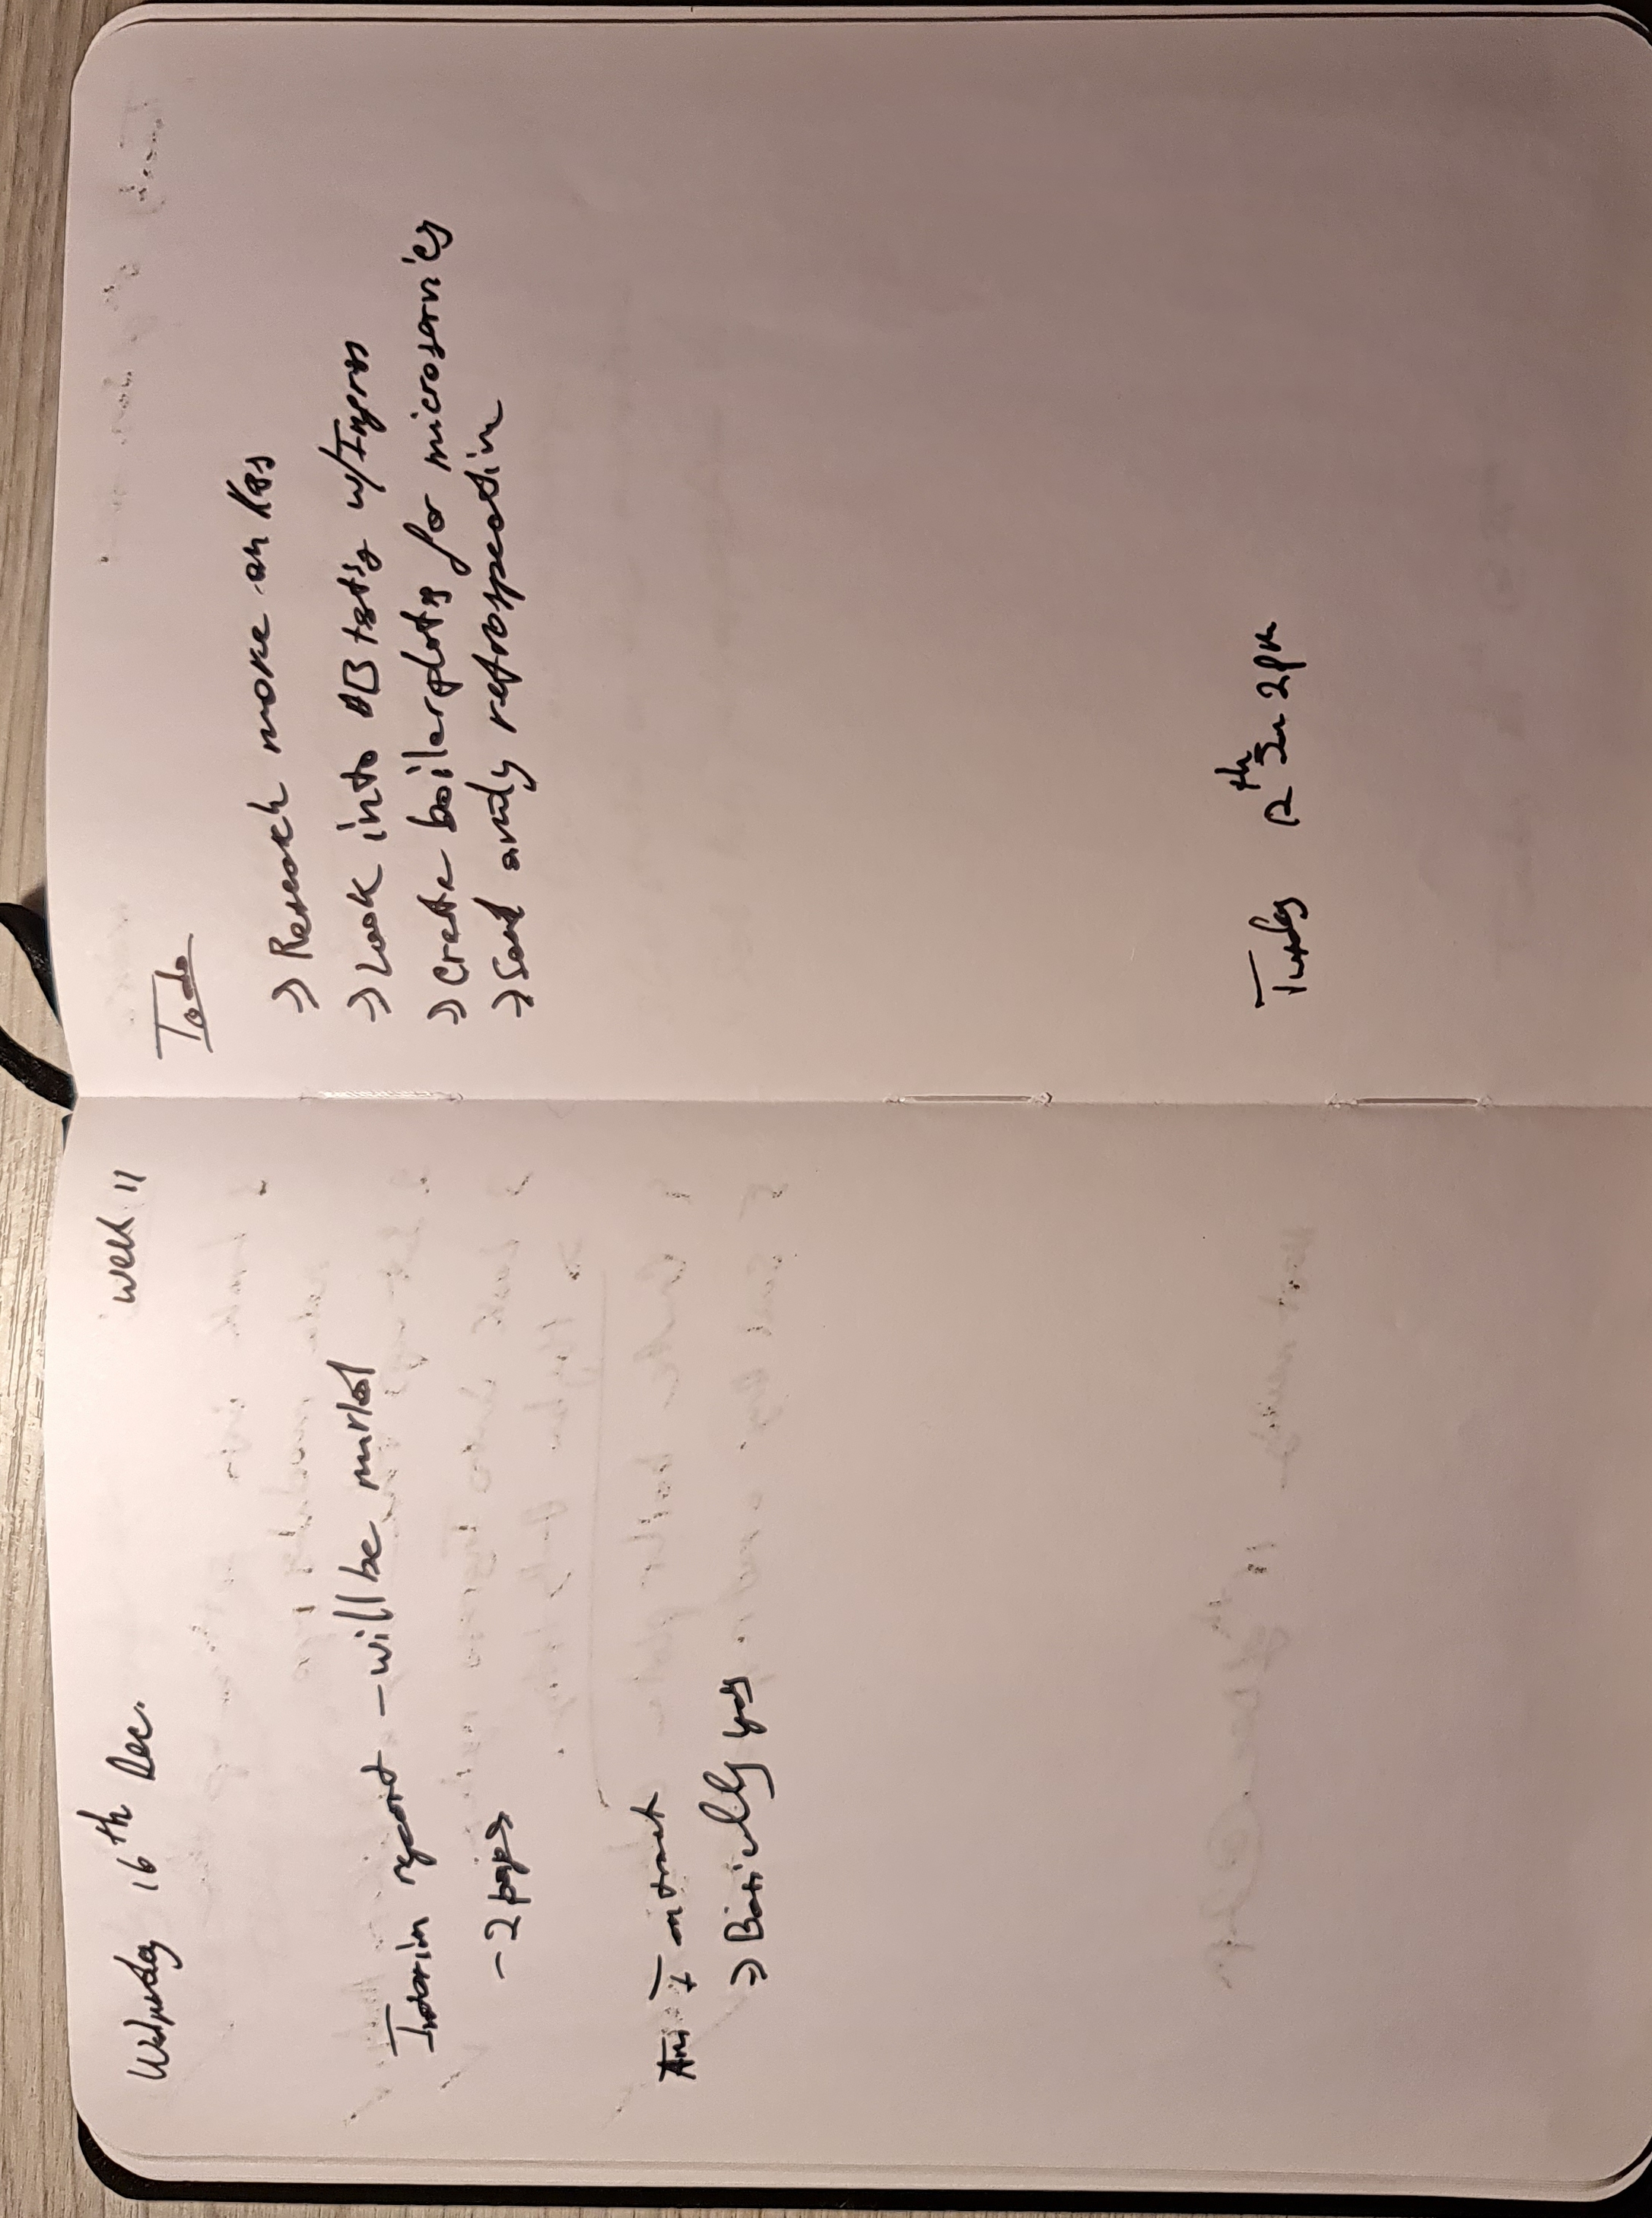 Wednesday 16th Dec.
Week 11
Interim report - will be marked
- 2 pages
Am I on track
→ Basically yes
Todo
→ Research more on K8s
→ Look into AB testing w/Ingress
→ Create boilerplates for microservices
→ Send retrospective
Tuesday 12th Jan 2pm